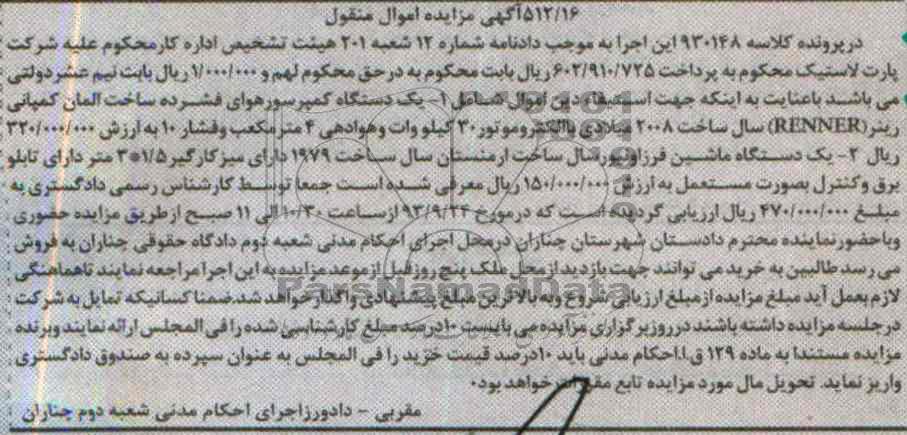 ۵۱۲/۱۶آگهی مزایده اموال منقول
در پرونده کلاسه ۹۳۰۱۴۸ این اجرا به موجب دادنامه شماره ۱۲ شعبه ۲۰۱ هیئت تشخیص اداره کار محکوم علیه شرکت
پارت لاستیک محکوم به پرداخت ۶۰۲/۹۱۰/۷۲۵ ریال بابت محکوم به در حق محکوم لهم و ۱/۰۰۰/۰۰۰ ریال بابت نیم عشر دولتی
می باشد باعنایت به اینکه جهت استیفاء دین اموال شامل ۱- یک دستگاه کمپرسور هوای فشرده ساخت آلمان کمپانی
رینر(RENNER) سال ساخت ۲۰۰۸ میلادی باالکتروموتور۳۰ کیلو وات وهوادهی ۴ مترمکعب وفشار ۱۰ به ارزش ۳۲۰/۰۰۰/۰۰۰
ریال ۲- یک دستگاه ماشین فرزاونیورسال ساخت ارمنستان سال ساخت ۱۹۷۹ دارای میز کارگیر ۱/۵*۳ متر دارای تابلو
برق وکنترل بصورت مستعمل به ارزش ۱۵۰/۰۰۰/۰۰۰ ریال معرفی شده است جمعا توسط کارشناس رسمی دادگستری به
مبلغ ۴۷۰/۰۰۰/۰۰۰ ریال ارزیابی گردیده است که درمورخ ۹۳/۹/۲۴ ازساعت ۱۰/۳۰ الی ۱۱ صبح ازطریق مزایده حضوری
وباحضورنماینده محترم دادستان شهرستان چناران درمحل اجرای احکام مدنی شعبه دوم دادگاه حقوقی چناران به فروش
می رسد طالبین به خرید می توانند جهت بازدید از محل ملک پنج روزقبل ازموعد مزایده به این اجرا مراجعه نمایند تاهماهنگی
لازم بعمل آید مبلغ مزایده ازمبلغ ارزیابی شروع وبه بالاترین مبلغ پیشنهادی واگذارخواهد شد.ضمنا کسانیکه تمایل به شرکت
درجلسه مزایده داشته باشند درروزبرگزاری مزایده می بایست ۱۰درصد مبلغ کارشناسی شده را فی المجلس ارائه نمایند وبرنده
مزایده مستندا به ماده ۱۲۹ ق.ا.احکام مدنی باید ۱۰درصد قیمت خرید را فی المجلس به عنوان سپرده به صندوق دادگستری
واریز نماید. تحویل مال مورد مزایده تابع مقررات خواهد بود.
مقربی - دادورزاجرای احکام مدنی شعبه دوم چناران
ParsNamadData